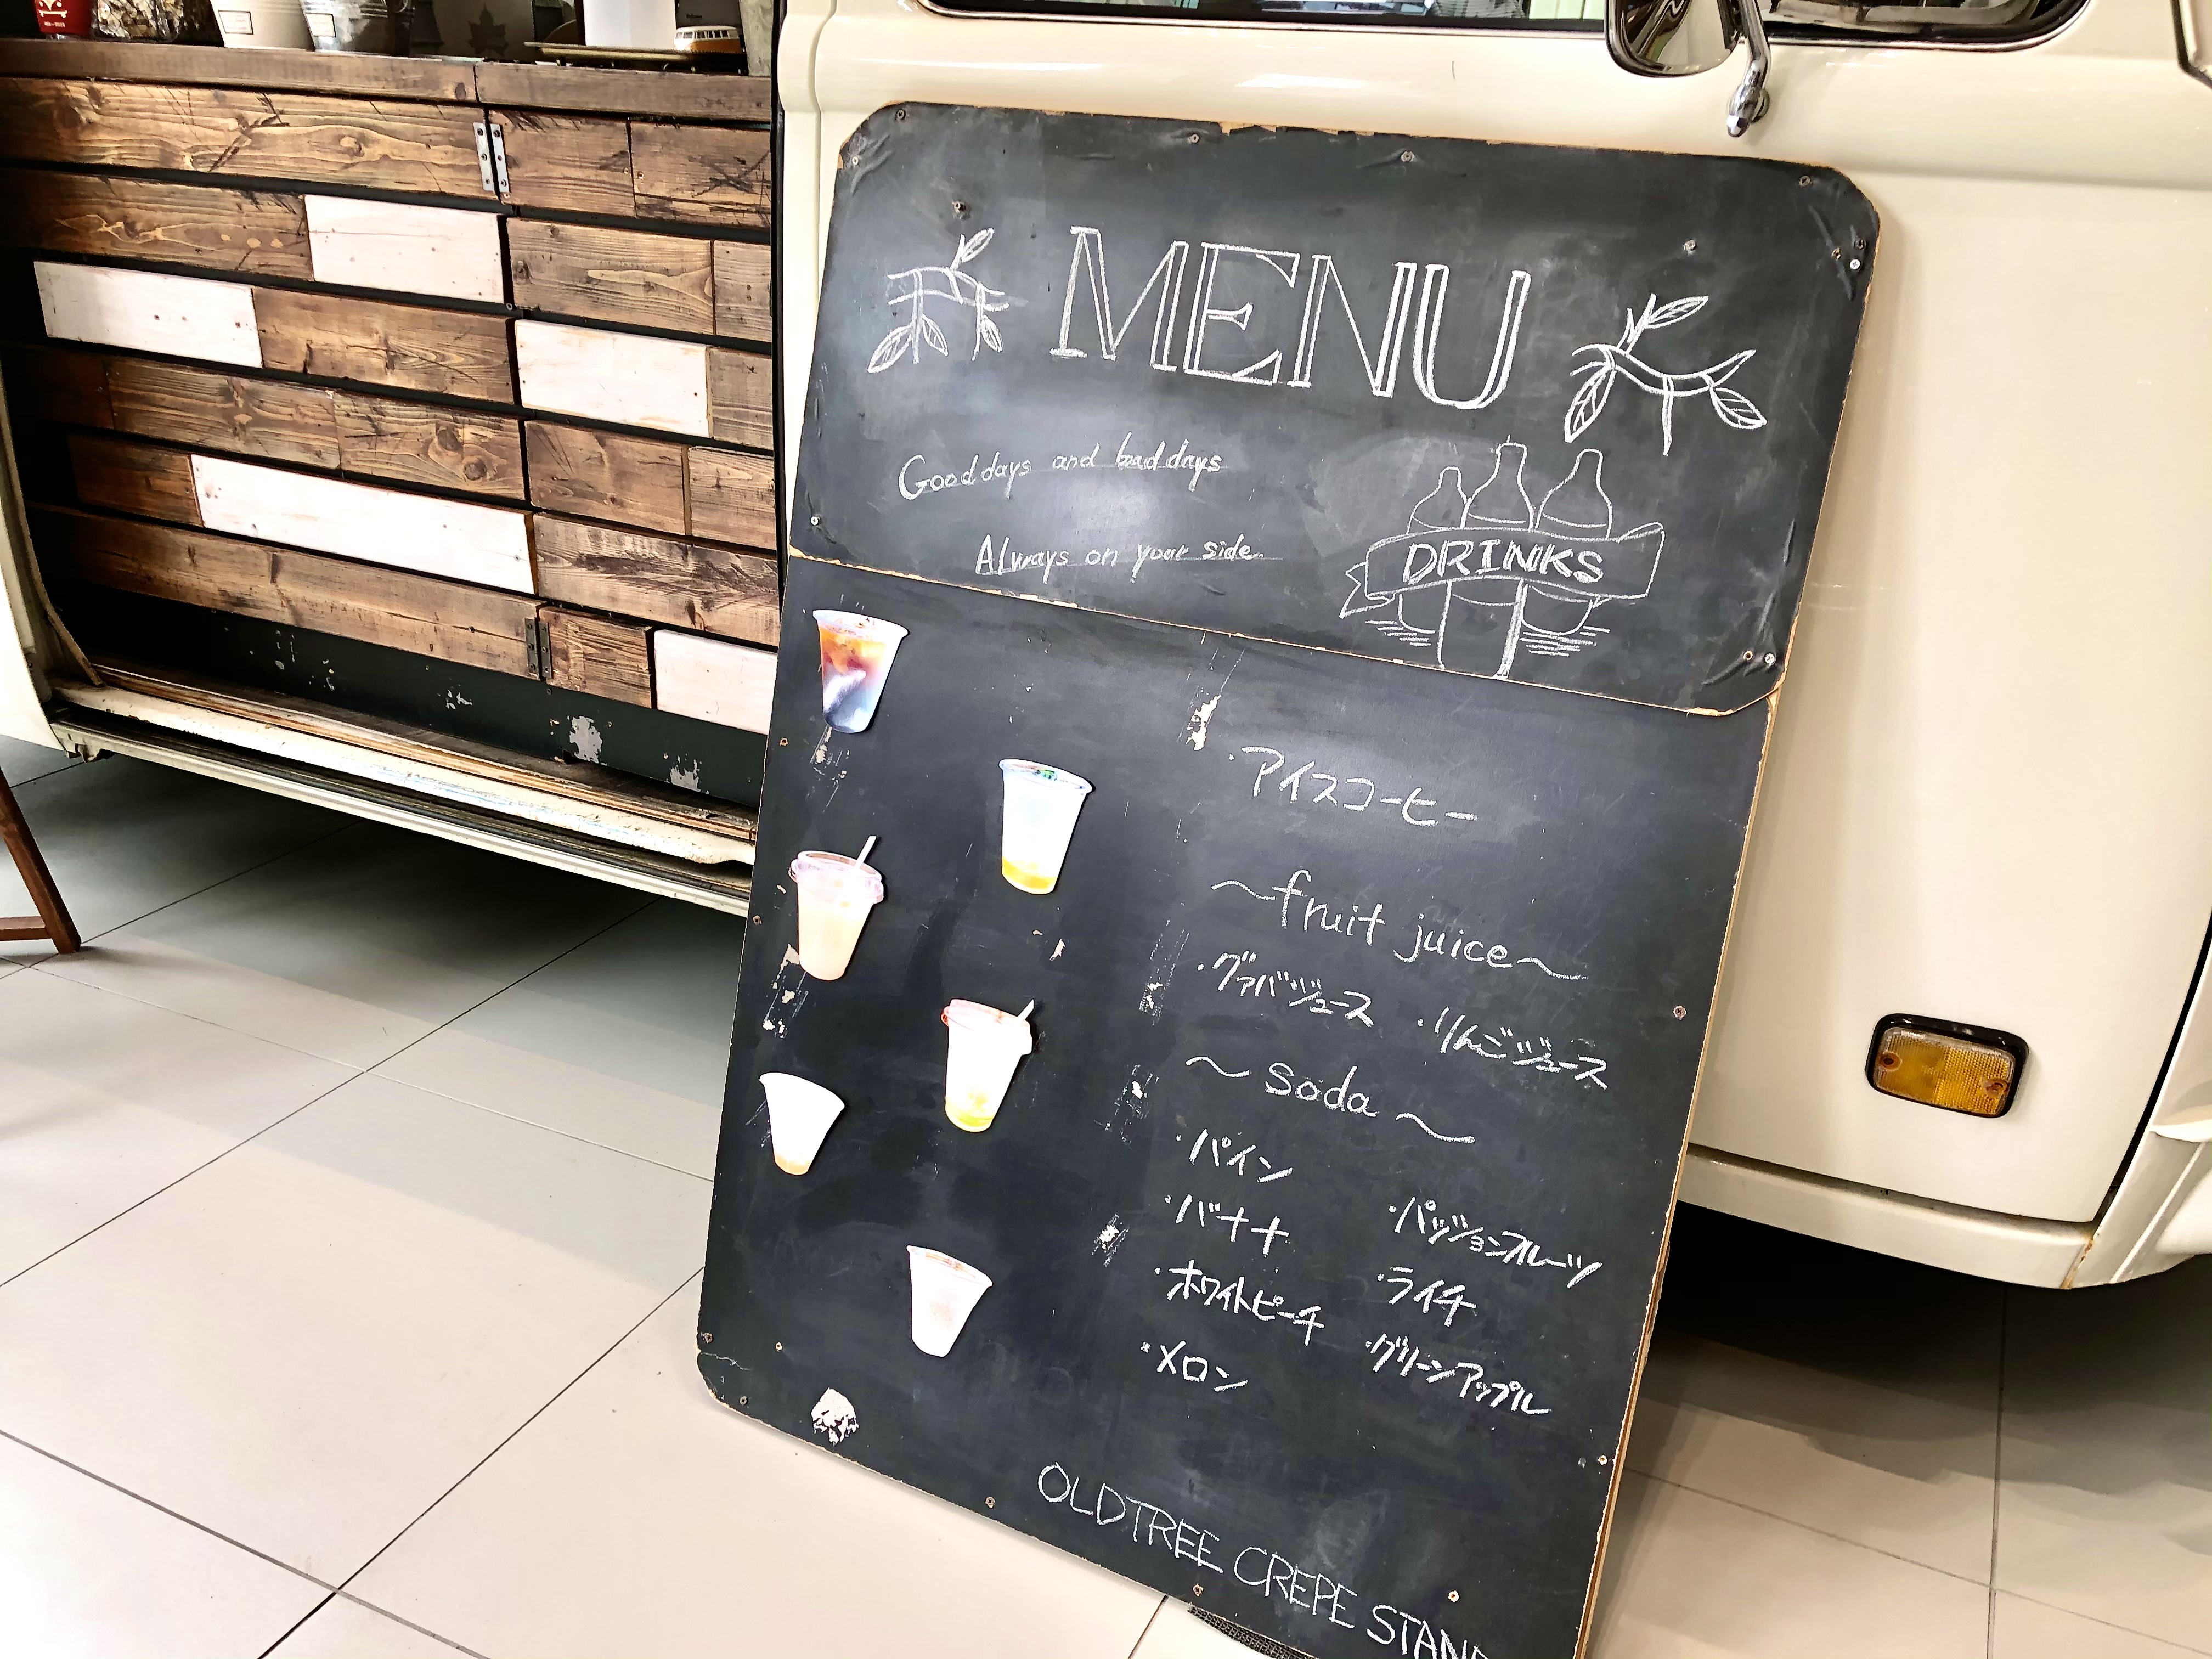 MENU
Good days and bad days
Always on your side
DRINKS
・アイスコーヒー
〜fruit juice〜
・グァバジュース ・りんごジュース
〜soda〜
・パイン
・バナナ ・パッションフルーツ
・ホワイトピーチ ・ライチ
・メロン ・グリーンアップル
OLDTREE CREPE STAND